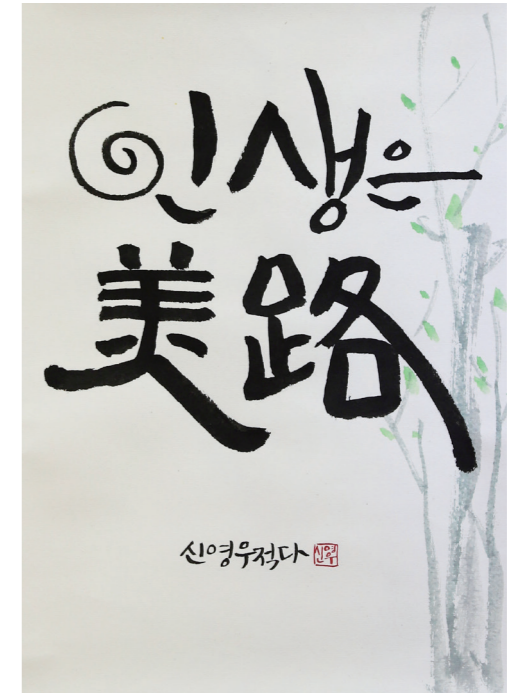 인생은
美路
신영우적다
신영우